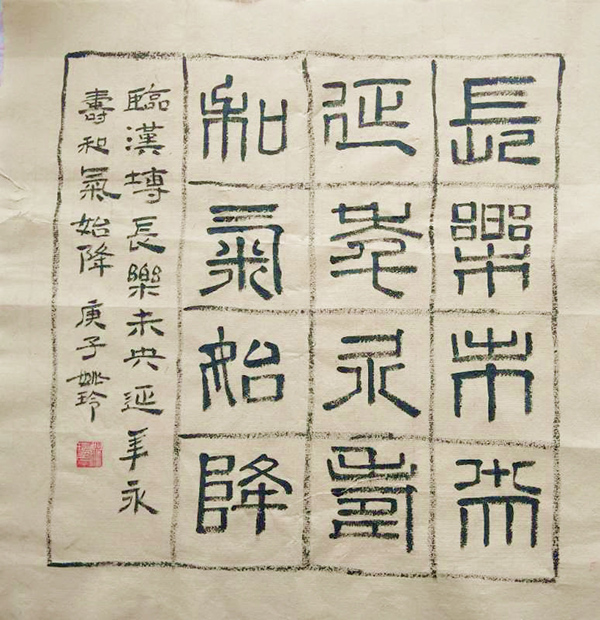 長樂未央
延年永壽
和氣始降
臨漢塼長樂未央延年永
壽和氣始降 庚子 姚玲